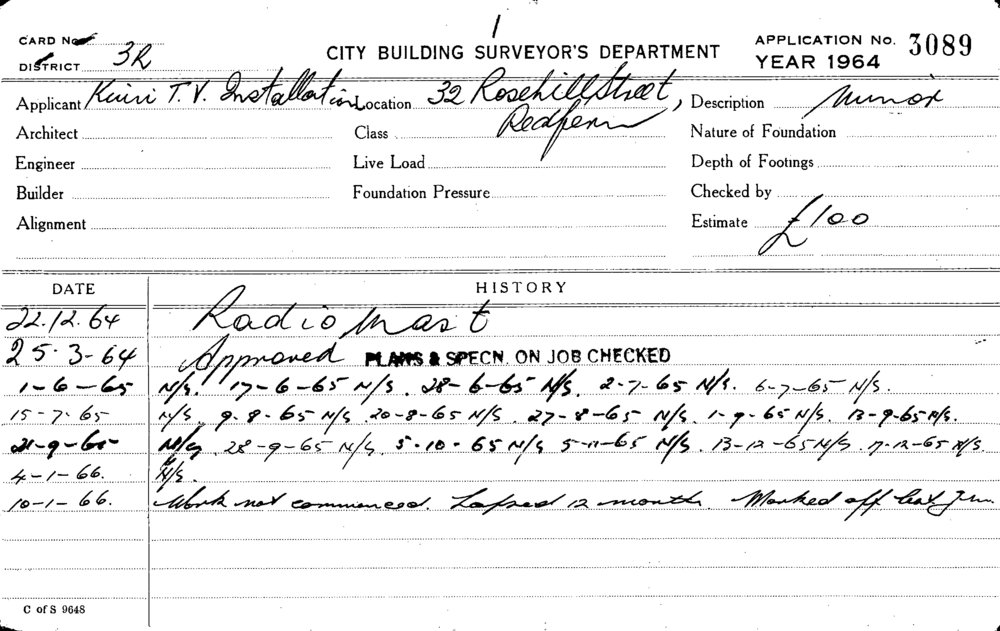 CARD No.
CITY BUILDING SURVEYOR'S DEPARTMENT
APPLICATION No. 3089
DISTRICT 3R
YEAR 1964
Applicant T.V. Installation Location 32 Rosehill Street, Redfern Description Minor
Architect Class Nature of Foundation
Engineer Live Load Depth of Footings
Builder Foundation Pressure Checked by
Alignment Estimate £100
DATE HISTORY
22.12.64 Radio Mast
25-3-64 Approved PLANS & SPECN. ON JOB CHECKED
1-6-65 N/S. 17-6-65 N/S. 28-6-65 N/S. 2-7-65 N/S. 6-7-65 N/S.
15-7-65 N/S. 9-8-65 N/S. 20-8-65 N/S. 27-8-65 N/S. 1-9-65 N/S. 13-9-65 N/S.
21-9-65 N/S 28-9-65 N/S. 5-10-65 N/S 5-11-65 N/S. 13-12-65 N/S. 17-12-65 N/S.
4-1-66. N/S.
10-1-66. Work not commenced. Lapsed 12 months. Marked off
C of S 9648